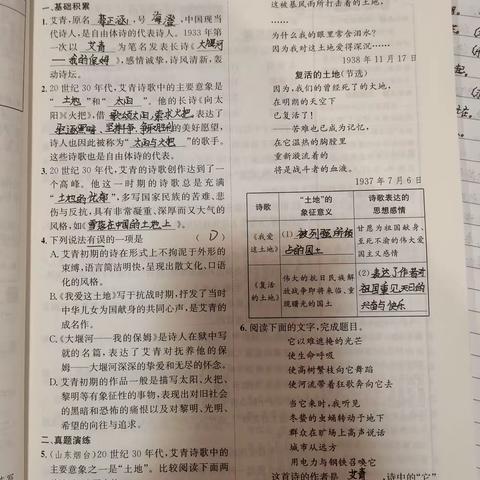 一.基础积累
1. 艾青,原名 蒋正涵,号 海澄,中国现当
代诗人,是自由体诗的代表诗人。1933年第
一次以 艾青 为笔名发表长诗《大堰河
——我的保姆》,感情诚挚,诗风清新,轰
动诗坛。
2. 20世纪30年代,艾青诗歌中的主要意象是
“土地”和“太阳”。他的长诗《向太
阳》《火把》,借歌颂太阳、索求火把,表达了
驱逐黑暗、坚持斗争、争取胜利的美好愿望,
诗人也因此被称为“太阳与火把”的歌手。
这些诗歌也是自由体诗的代表。
3. 20世纪30年代,艾青的诗歌创作达到了一
个高峰。他这一时期的诗歌总是充满
“土地的忧郁”,多写国家民族的苦难、悲
伤与反抗,具有非常凝重、深厚而又大气的
风格,如《雪落在中国的土地上》。
4. 下列说法有误的一项是 ( D )
A. 艾青初期的诗在形式上不拘泥于外形的
束缚,语言简洁明快,呈现出散文化、口语
化的风格。
B.《我爱这土地》写于抗战时期,抒发了当时
中华儿女为国献身的共同心声,是艾青的
成名作。
C.《大堰河——我的保姆》是诗人在狱中写
就的名篇,表达了艾青对抚养他的保
姆——大堰河深深的挚爱和无尽的怀念。
D. 艾青初期的作品一般是描写太阳、火把、
黎明等有象征性的事物,表现出对旧社会
的黑暗和恐怖的痛恨以及对黎明、光明、
希望的向往与追求。
二.真题演练
5. (山东烟台)20世纪30年代,艾青诗歌中的
主要意象之一是“土地”。比较阅读下面两
这被暴风雨所打击着的土地,
……
为什么我的眼里常含泪水?
因为我对这土地爱得深沉……
1938年11月17日
复活的土地(节选)
因为,我们的曾经死了的大地,
在明朗的天空下
已复活了!
——苦难也已成为记忆,
在它温热的胸膛里
重新漩流着的
将是战斗者的血液。
1937年7月6日
诗歌 “土地”的象征意义 诗歌表达的思想感情
《我爱这土地》 (1) 被列强所侵占的国土 甘愿为祖国献身、至死不渝的伟大爱国主义感情
《复活的土地》 伟大的抗日民族解放战争即将来临,重现曙光的国土 (2) 表达了作者对祖国重见天日的兴奋与快乐
6. 阅读下面的文字,完成题目。
它以难遮掩的光芒
使生命呼吸
使高树繁枝向它舞蹈
使河流带着狂歌奔向它去
当它来时,我听见
冬蛰的虫蛹转动于地下
群众在旷场上高声说话
城市从远方
用电力与钢铁召唤它
这首诗的作者是 艾青,诗中的“它”